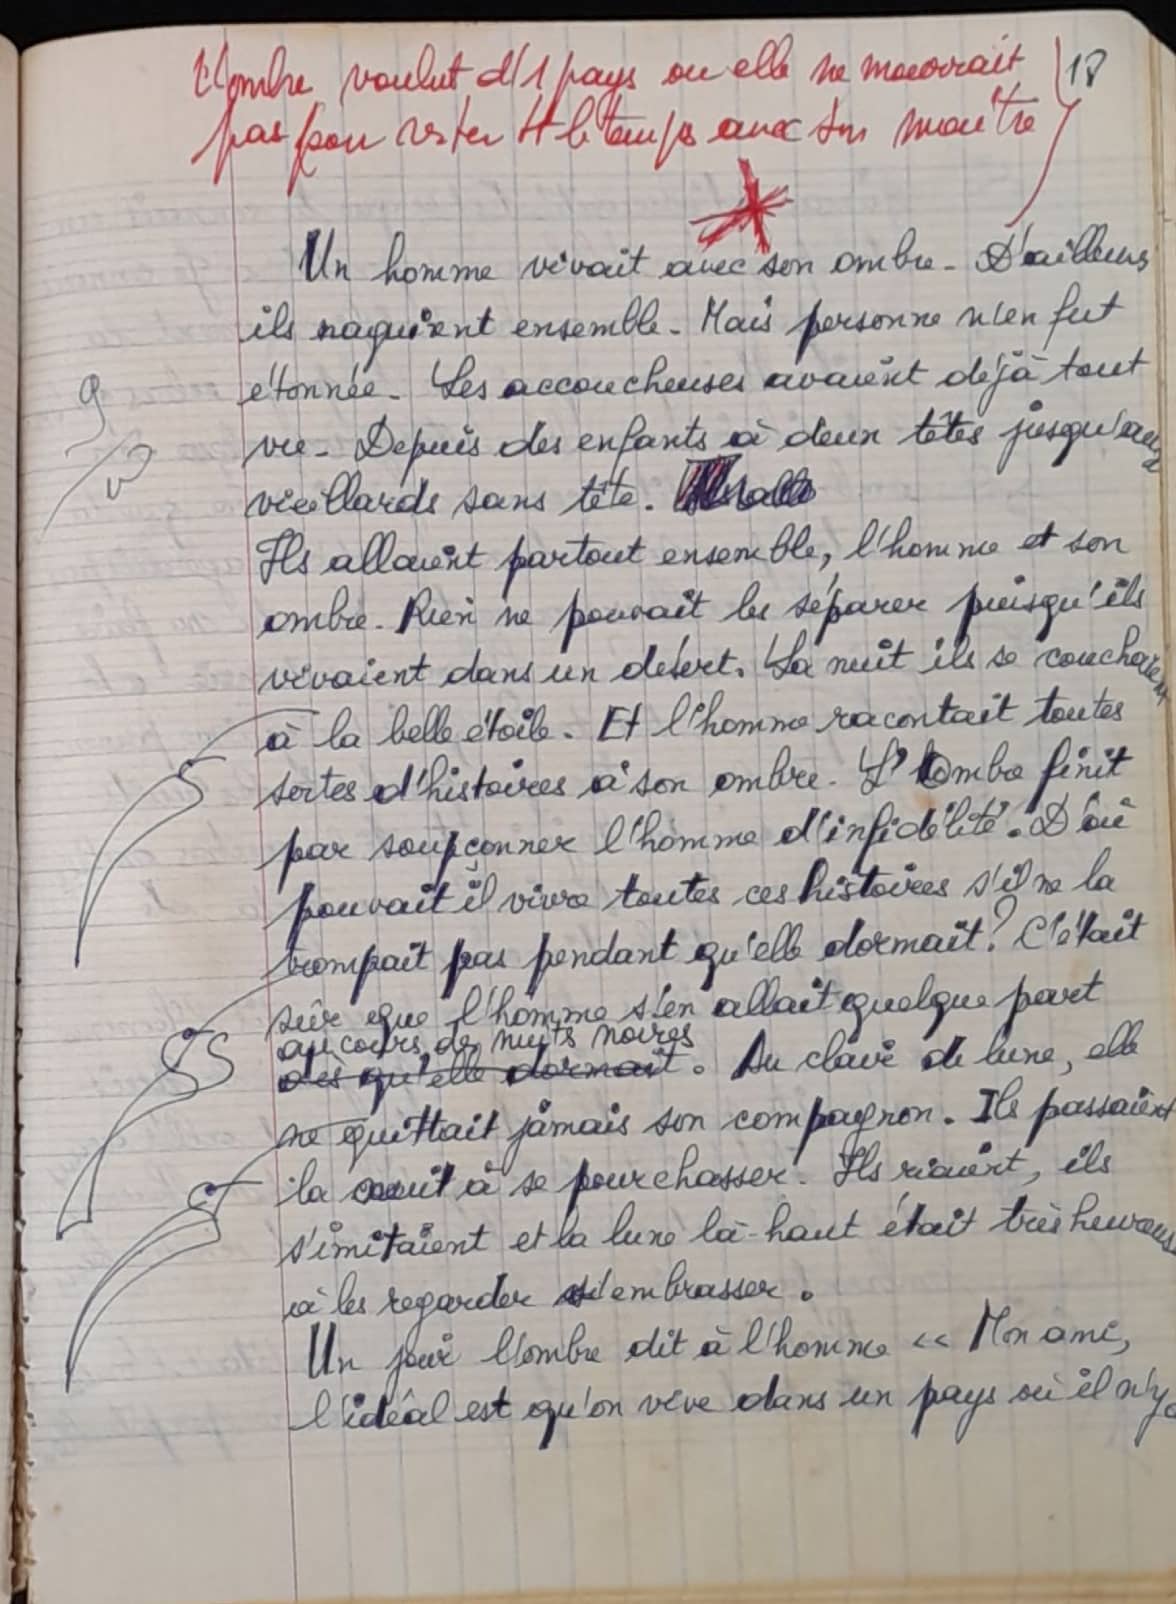 L'ombre voulut d'1 pays où elle ne mourrait
pas pour rester tt le temps avec son maître
18
Un homme vivait avec son ombre. D'ailleurs
ils naquirent ensemble. Mais personne n'en fut
étonnée. Les accoucheuses avaient déjà tout
vu. Depuis des enfants à deux têtes jusqu'aux
vieillards sans tête.
Ils allaient partout ensemble, l'homme et son
ombre. Rien ne pouvait les séparer puisqu'ils
vivaient dans un désert. La nuit ils se couchaient
à la belle étoile. Et l'homme racontait toutes
sortes d'histoires à son ombre. L'ombre finit
par soupçonner l'homme d'infidélité. D'où
pouvait il vivre toutes ces histoires s'il ne la
trompait pas pendant qu'elle dormait? C'était
sûr que l'homme s'en allait quelque part
au cours des nuits noires
dès qu'elle dormait. Au clair de lune, elle
ne quittait jamais son compagnon. Ils passaient
la nuit à se pourchasser. Ils riaient, ils
s'imitaient et la lune là-haut était très heureuse
à les regarder s'embrasser.
Un jour l'ombre dit à l'homme « Mon ami,
l'idéal est qu'on vive dans un pays où il n'y a